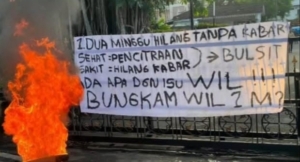 1. DUA MINGGU HILANG TANPA KABAR
SEHAT : PENCITRAAN
SAKIT : HILANG KABAR ) → BULSIT
ADA APA DGN ISU WIL !!!
BUNGKAM WIL ? M?